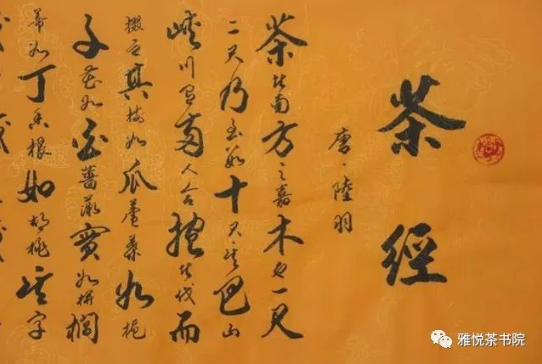 茶經
唐·陸羽
茶者南方之嘉木也一尺
二尺乃至數十尺其巴山
峽川有兩人合抱者伐而
掇之其樹如瓜蘆葉如梔
子花如白薔薇實如栟櫚
蒂如丁香根如胡桃其字
雅悦茶书院